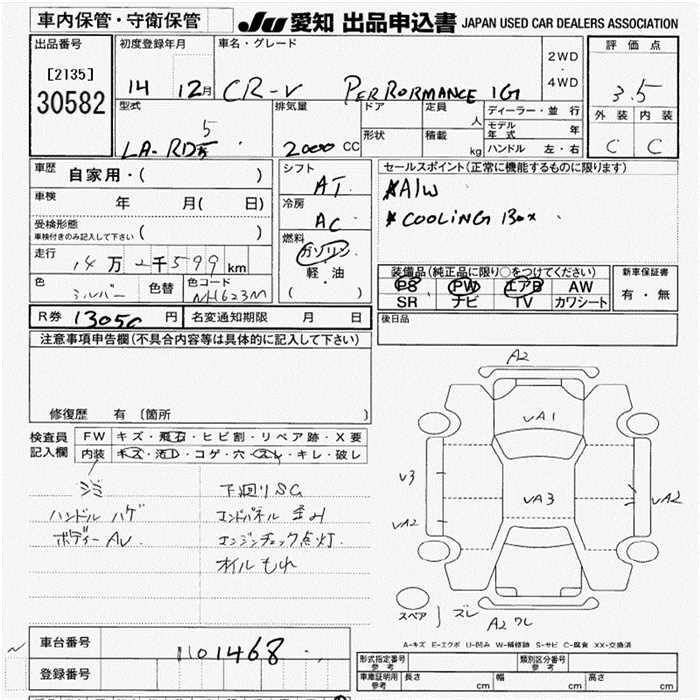 車内保管・守衛保管 JU 愛知 出品申込書 JAPAN USED CAR DEALERS ASSOCIATION
出品番号 初度登録年月 車名・グレード 評価点
[2135] 2WD
30582 14 12月 CR-V PERRORMANCE IG ・ 4WD 3.5
型式 排気量 ドア 定員 人 ディーラー・並行 外装 内装
モデル年式 年
LA-RD5 5 2000 CC 形状 積載 kg ハンドル 左・右 C C
車歴 自家用・( ) シフト AT セールスポイント(正常に機能するものに限ります)
車検 年 月( 日) 冷房 AC *A/W
受検形態 ( ) *COOLING Box
車検付きのみ記入して下さい 燃料
走行 14万2千599km ガソリン・軽油 ( )
装備品(純正品に限り○をつけてください) 新車保証書
色 シルバー 色替 色コード NH623M PS PW エアB AW 有・無
SR ナビ TV カワシート
R券 13050円 名変通知期限 月 日 後日品
注意事項申告欄(不具合内容等は具体的に記入して下さい)
修復歴 有 〔箇所 〕
検査員 FW キズ・飛石・ヒビ割・リペア跡・X要
記入欄 内装 キズ・汚レ・コゲ・穴・スレ・キレ・破レ
シミ 下廻りSC
ハンドル ハゲ エンドパネル 歪み
ボディー AU エンジンチェック点灯.
オイルもれ
A2
UA1
U3 UA3 UA2
UA2
スペア ズレ A2ワレ
A-キズ E-エクボ U-凹み W-補修跡 S-サビ C-腐食 XX-交換済
車台番号 1101468
登録番号
形式指定番号 参考 類別区分番号 参考
車庫証明用 参考 長さ cm 幅 cm 高さ cm